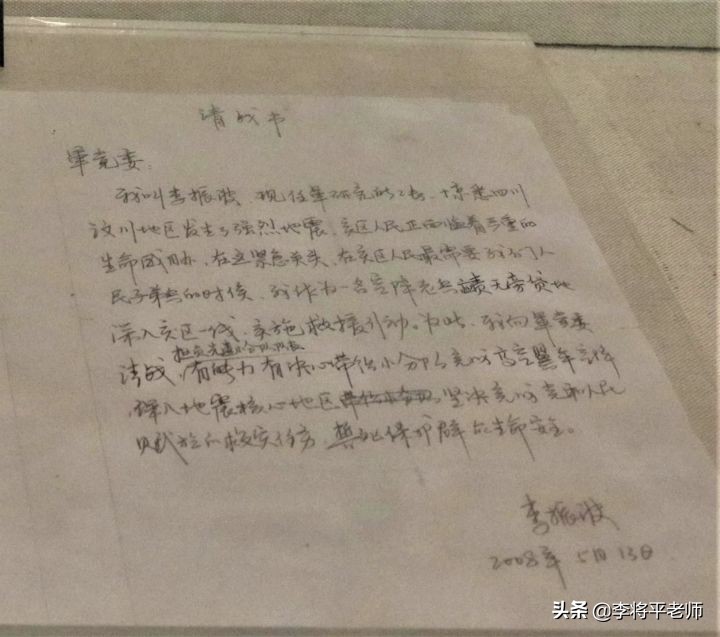 请战书
军党委:
我叫李振波,现任军研究所所长,惊悉四川
汶川地区发生了强烈地震,灾区人民正面临着严重的
生命威胁,在这紧急关头,在灾区人民最需要我们人
民子弟兵的时候,我作为一名空降老兵责无旁贷地
深入灾区一线,实施救援行动。为此,我向军党委
请战,有能力有决心带领小分队完成高空翼伞空降
深入地震核心地区坚决完成党和人民
赋于的救灾任务,誓死保护群众生命安全。
李振波
2008年5月13日
头条 @李将平老师